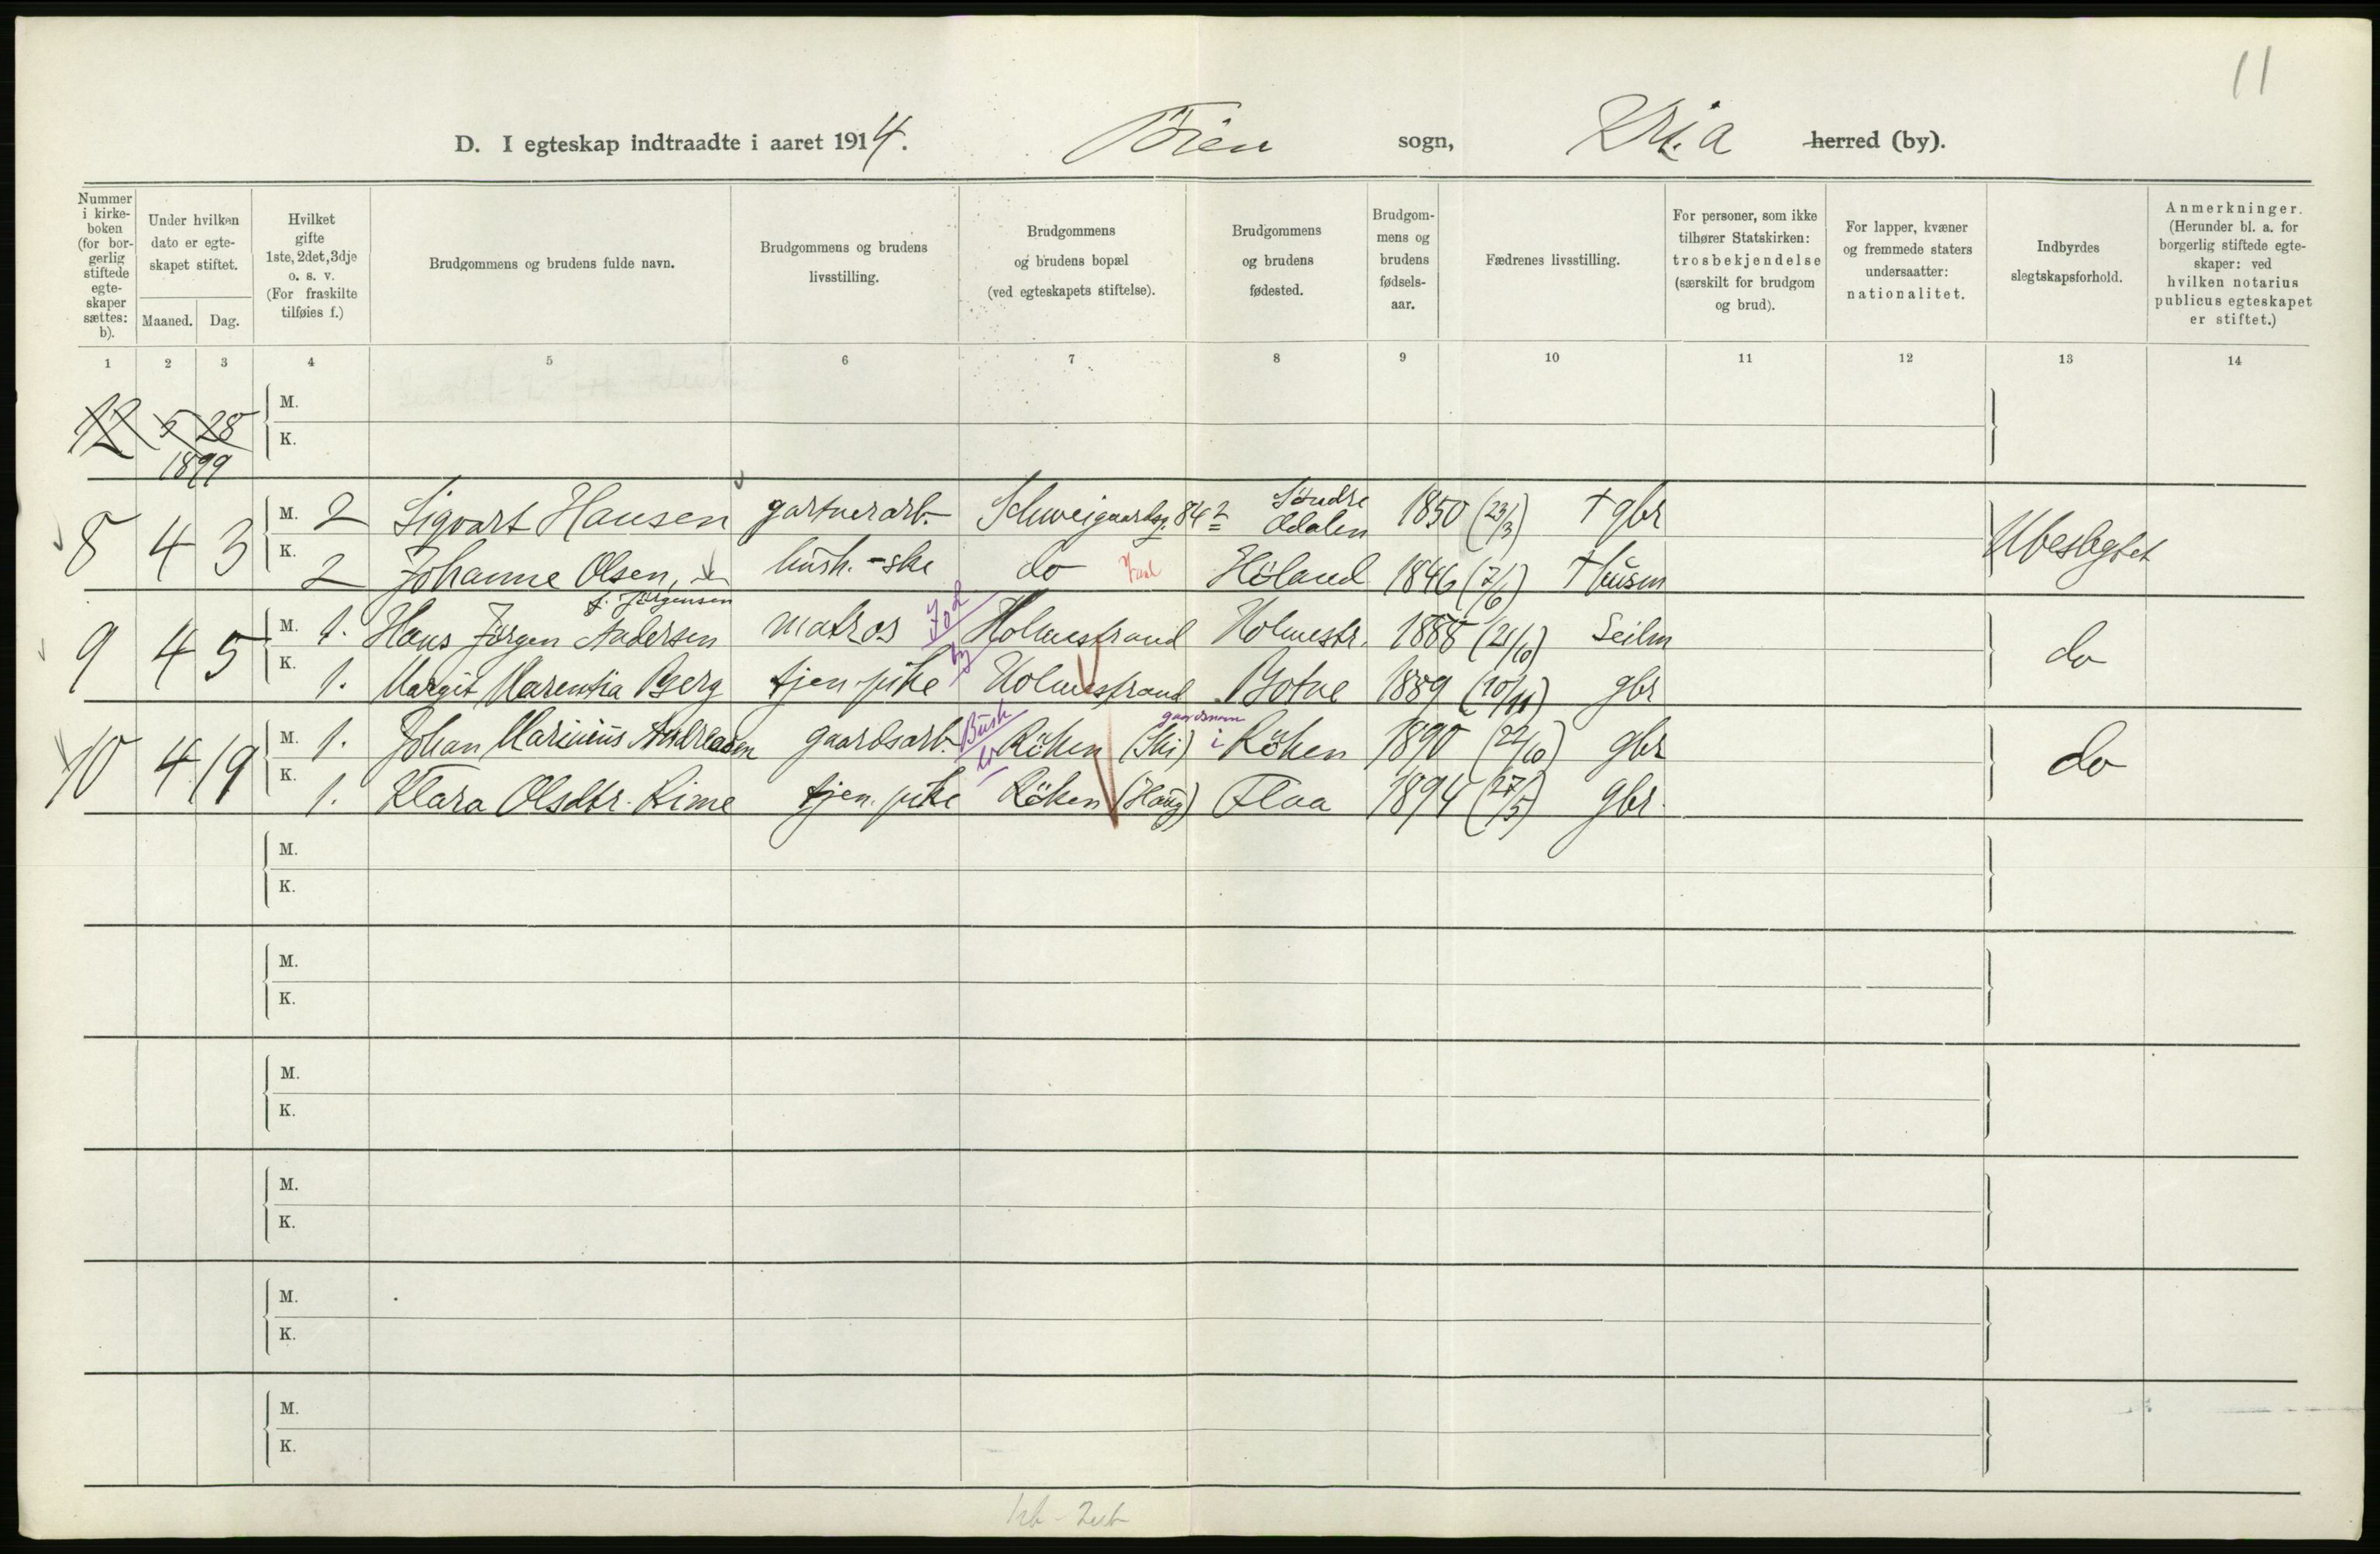 11
D. I egteskap indtraadte i aaret 1914. Töien sogn, Kr.a herred (by).
Nummer i kirke-boken (for bor-gerlig stiftede egte-skaper sættes: b).
Under hvilken dato er egte-skapet stiftet.
Maaned. Dag.
Hvilket gifte 1ste, 2det, 3dje o. s. v. (For fraskilte tilføies f.)
Brudgommens og brudens fulde navn.
Brudgommens og brudens livsstilling.
Brudgommens og brudens bopæl (ved egteskapets stiftelse).
Brudgommens og brudens fødested.
Brudgom-mens og brudens fødsels-aar.
Fædrenes livsstilling.
For personer, som ikke tilhører Statskirken: trosbekjendelse (særskilt for brudgom og brud).
For lapper, kvæner og fremmede staters undersaatter: nationalitet.
Indbyrdes slegtskapsforhold.
Anmerkninger. (Herunder bl. a. for borgerlig stiftede egte-skaper: ved hvilken notarius publicus egteskapet er stiftet.)
1 2 3 4 5 6 7 8 9 10 11 12 13 14
12 5 28 M.
K.
1899
8 4 3 M. 2 Sigvart Hansen gartnerarb. Schweigaardsg. 84² Söndre Odalen 1850 (23/3) † gbr Ubeslegtet
K. 2 Johanne Olsen, f. Jörgensen hush.-ske do Höland 1846 (7/6) † husm
9 4 5 M. 1. Hans Jörgen Andersen matros Holmestrand Holmestr. 1888 (21/10) Seilm do
K. 1. Margit Marentia Berg tjen-pike Holmestrand Botne 1889 (10/11) gbr
10 4 19 M. 1. Johan Marinius Andreasen gaardsarb. Busk Röken (Ski) gaardsnavn i Röken 1890 (22/10) gbr do
K. 1. Klara Olsdtr. Rime tjen. pike Röken (Haug) Flaa 1894 (27/5) gbr.
M.
K.
M.
K.
M.
K.
M.
K.
M.
K.
M.
K.